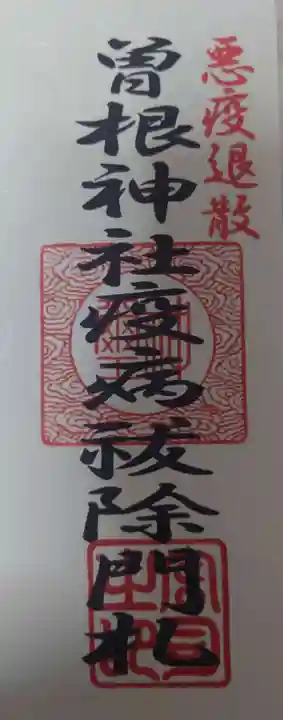 悪疫退散
曽根神社疫病祓除門札